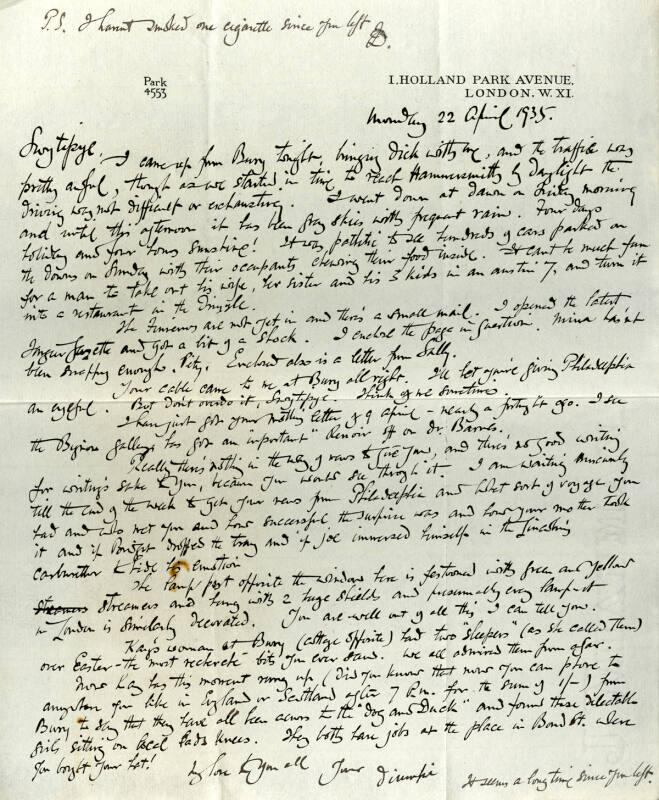 P.S. I havent smoked one cigarette since you left
Park
4553
1, HOLLAND PARK AVENUE,
LONDON. W. XI.
Monday 22 April 1935.
I came up from Bury tonight, bringing Dick with me, and the traffic was
pretty awful, though as we started in time to reach Hammersmith by daylight the
driving was not difficult or exhausting. I went down at dawn on Friday morning
and until this afternoon it has been grey skies with frequent rain. Four days
holiday and four hours sunshine! It was pathetic to see hundreds of cars parked on
the downs on Sunday with their occupants chewing their food inside. It cant be much fun
for a man to take out his wife, her sister and his 3 kids in an austin 7, and turn it
into a restaurant in the drizzle.
The are not yet in and theres a small mail. I opened the latest
Gazette and got a bit of a shock. I enclose the page in question. Mina hasnt
been snappy enough. Pity. Enclosed also is a letter from Sally.
Your cable came to me at Bury all right. I'll bet you're giving Philadelphia
an eyeful. But don't overdo it, Think of me sometime.
I have just got your mother's letter of 9 April - nearly a fortnight ago. I see
the Bignou gallery has got an important "Renoir off on Dr. Barnes.
Really there's nothing in the way of news to give you, and there's no good writing
for writing's sake to you, because you would see through it. I am waiting
till the end of the week to get your news from Philadelphia and what sort of voyage you
had and who met you and how successful the surprise was and how your mother took
it and if dropped the tray and if Joe immersed himself in the Lincoln's
carburetter to hide his emotion.
The lamp post opposite the window here is festooned with green and yellow
streamers and hung with 2 huge shields and presumably every lamp-
in London is similarly decorated. You are well out of all this I can tell you.
Kay's woman at Bury (cottage opposite) had two "sleepers" (as she called them)
over Easter - the most recherché bits you ever saw. We all admired them from afar.
Now Kay has this moment rung up (Did you know that now you can phone to
anywhere you like in England or Scotland after 7 P.m. for the sum of 1/-) from
Bury to say that they have all been across to the "Dog and Duck" and found these delectable
girls sitting on local lads knees. They both have jobs at the place in Bond St. where
you bought your hat!
My love to you all Your
It seems a long time since you left.